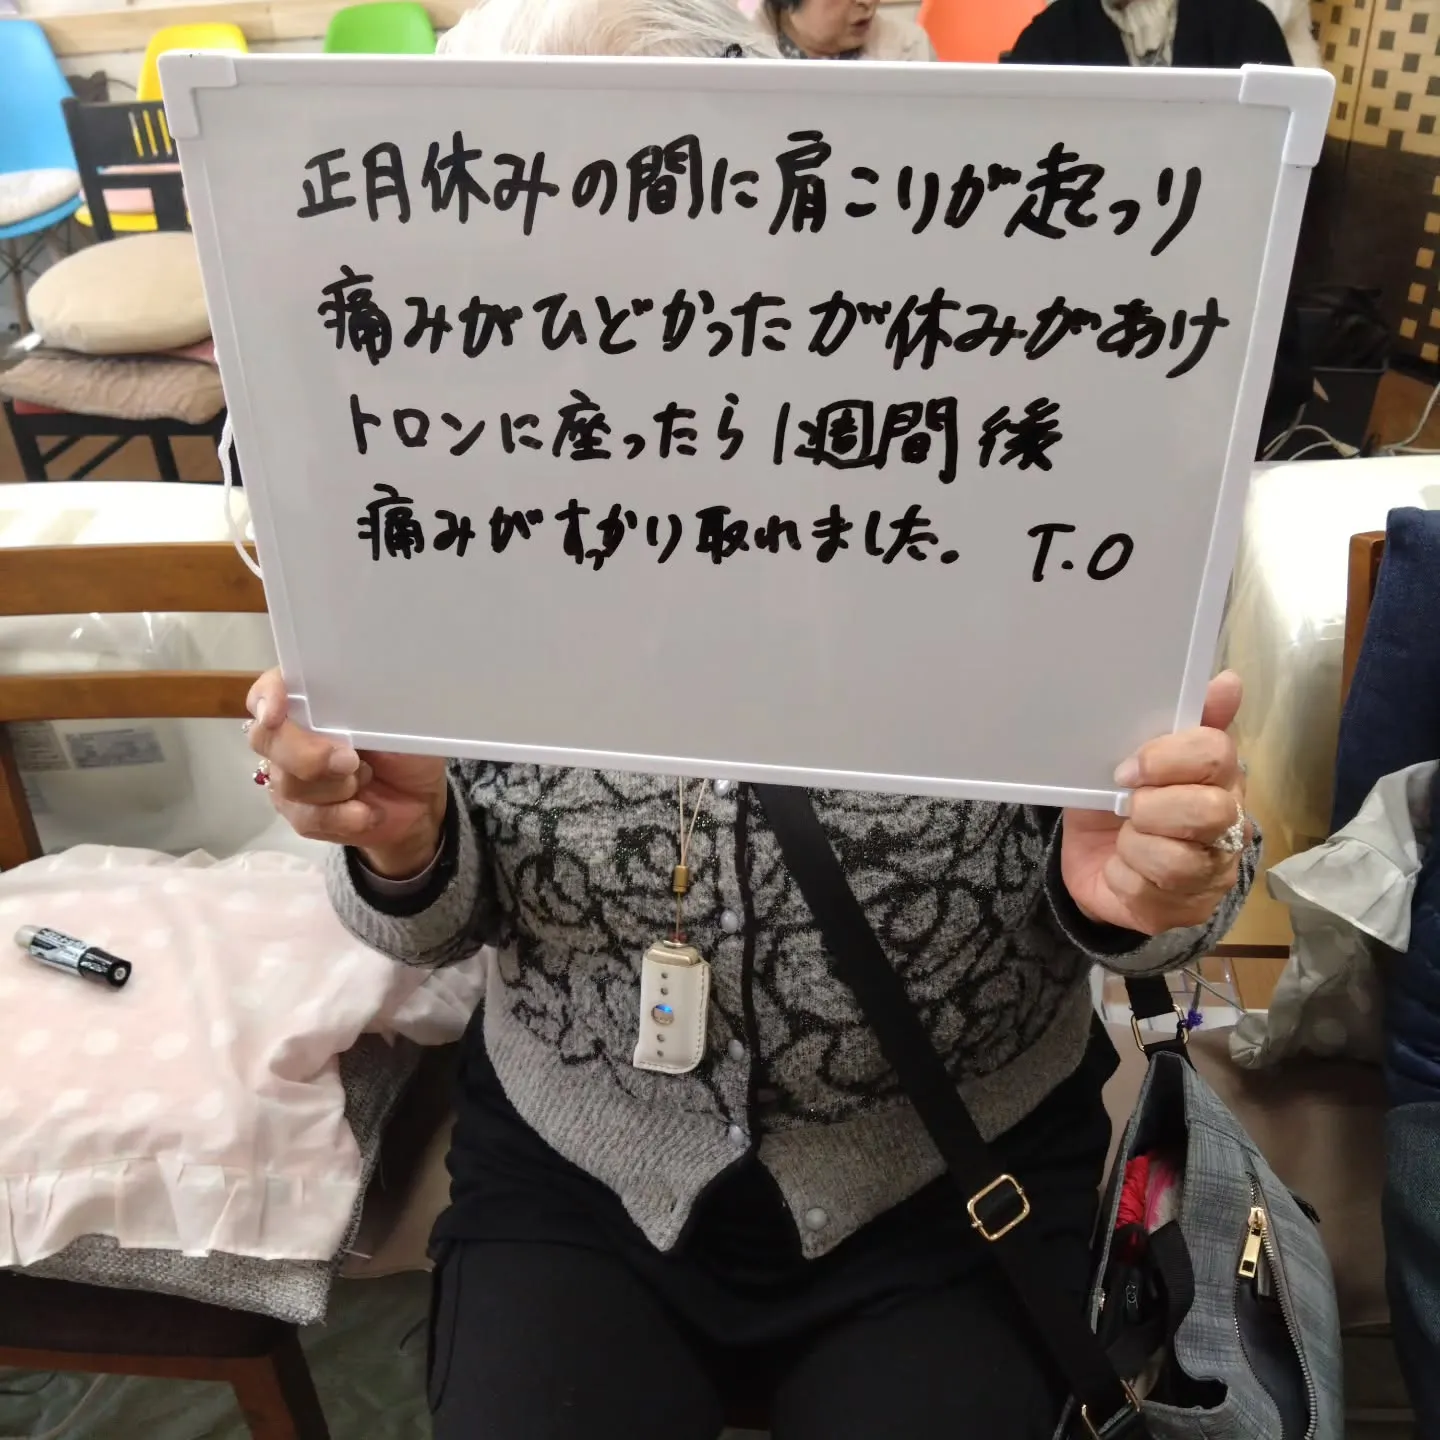 正月休みの間に肩こりが起っり
痛みがひどかったが休みがあけ
トロンに座ったら1週間後
痛みがすっかり取れました。 T.O